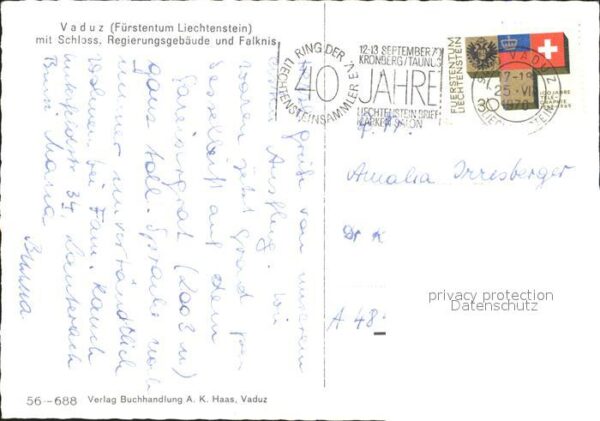 Vaduz (Fürstentum Liechtenstein)
mit Schloss, Regierungsgebäude und Falknis
RING DER
LIECHTENSTEINSAMMLER E.V.
40 JAHRE
12-13 SEPTEMBER 70
KRONBERG/TAUNUS
LIECHTENSTEIN BRIEF
MARKEN
FÜRSTENTUM
LIECHTENSTEIN
30
100 JAHRE
TELE-
GRAPHIE
VADUZ
17-18
25. VII
1970
LIECHTENSTEIN
Grüße von unserem
Ausflug. Wir
waren jetzt grad per
Sessellift auf dem
(2003 m)
ganz toll. Sprache
immer unverständlich
Wohnen bei Fam. Rauch
34, Lauterach
Bussi Maria
Amalia Irresberger
Dr K
A 48
privacy protection
Datenschutz
56-688 Verlag Buchhandlung A. K. Haas, Vaduz